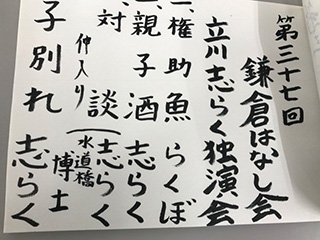 第三十七回
鎌倉はなし会
立川志らく独演会
一、権助魚 らくぼ
一、親子酒 志らく
、対談 志らく
水道橋博士
仲入り
子別れ 志らく